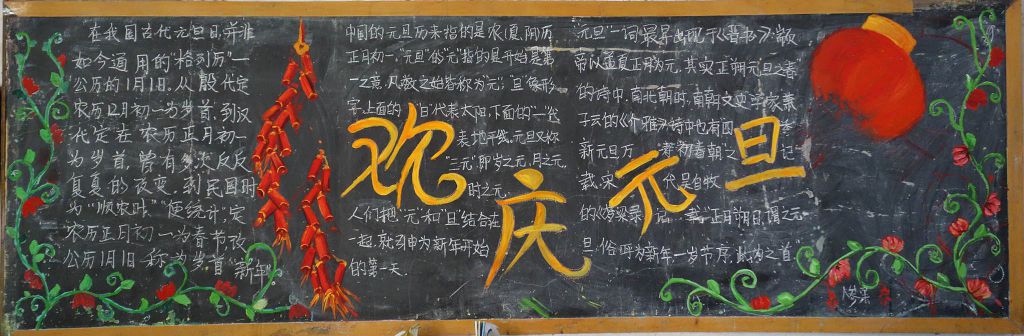 在我国古代元旦日,并非
如今通用的“格列历”一
公历的1月1日.从殷代定
农历12月初一为岁首,到汉
代定在农历正月初一
为岁首,曾有多次反反
复复的改变,到民国时
为“顺农时”“便统计”,定
农历正月初一为春节,改
公历1月1日称为岁首“新年”
中国的元旦历来指的是农(夏.阴)历
正月初一.“元旦”的“元”指的是开始是第
一之意,凡数之始皆称为“元”;“旦”像形
字,上面的“日”代表太阳,下面的“一”代
表地平线.元旦又称
“三元”即岁之元,月之元,
时之元,
人们把“元”和“旦”结合在
一起,就引申为新年开始
的第一天.
欢庆元旦
“元旦”一词最早出现于《晋书》:“
帝以孟夏正月为元,其实正朔元旦之春”
的诗中.南北朝时,南朝文史学家萧
子云的《介雅》诗中也有“四
新元旦万 初春朝”之 记
载.宋 代吴自牧
的《梦粱录 正月朔日,谓之元
旦,俗呼为新年.一岁节序,此为之首